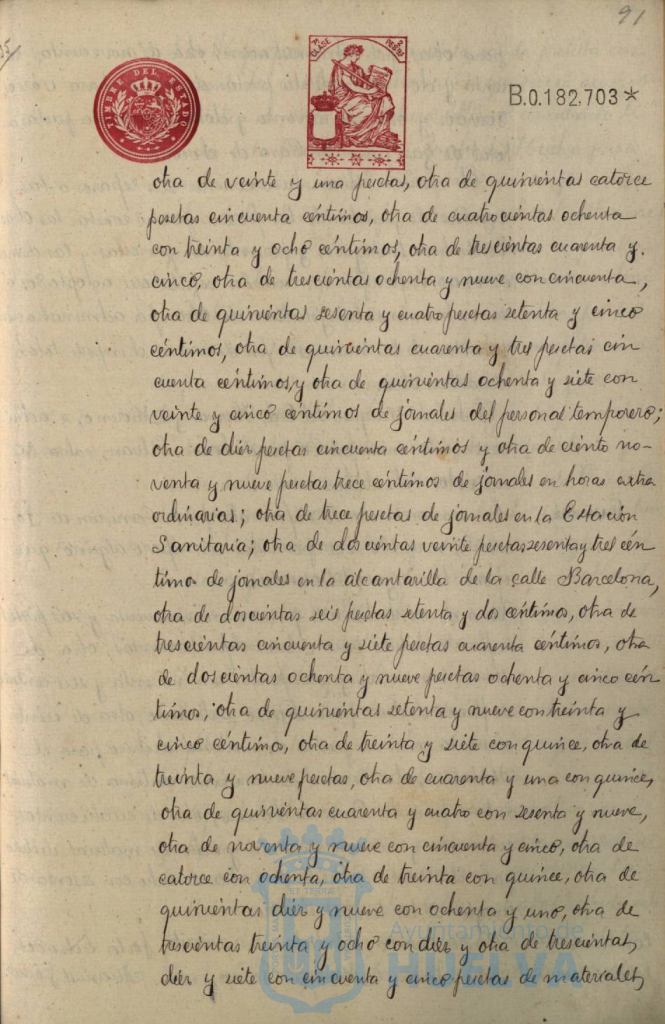 91
TIMBRE DEL ESTADO
7ª CLASE
2 PESETAS
B.0.182.703*
otra de veinte y una pesetas, otra de quinientas catorce
pesetas cincuenta céntimos, otra de cuatrocientas ochenta
con treinta y ocho céntimos, otra de trescientas cuarenta y
cinco, otra de trescientas ochenta y nueve con cincuenta,
otra de quinientas sesenta y cuatro pesetas setenta y cinco
céntimos, otra de quinientas cuarenta y tres pesetas cin
cuenta céntimos, y otra de quinientas ochenta y siete con
veinte y cinco céntimos de jornales del personal temporero;
otra de diez pesetas cincuenta céntimos y otra de ciento no-
venta y nueve pesetas trece céntimos de jornales en horas extra
ordinarias; otra de trece pesetas de jornales en la Estación
Sanitaria; otra de doscientas veinte pesetas sesenta y tres cén
timos de jornales en la alcantarilla de la calle Barcelona,
otra de doscientas seis pesetas setenta y dos céntimos, otra de
trescientas cincuenta y siete pesetas cuarenta céntimos, otra
de doscientas ochenta y nueve pesetas ochenta y cinco cén
timos, otra de quinientas setenta y nueve con treinta y
cinco céntimos, otra de treinta y siete con quince, otra de
treinta y nueve pesetas, otra de cuarenta y una con quince,
otra de quinientas cuarenta y cuatro con sesenta y nueve,
otra de noventa y nueve con cincuenta y cinco, otra de
catorce con ochenta, otra de treinta con quince, otra de
quinientas diez y nueve con ochenta y uno, otra de
trescientas treinta y ocho con diez y otra de trescientas
diez y siete con cincuenta y cinco pesetas de materiales,
Ayuntamiento de
HUELVA